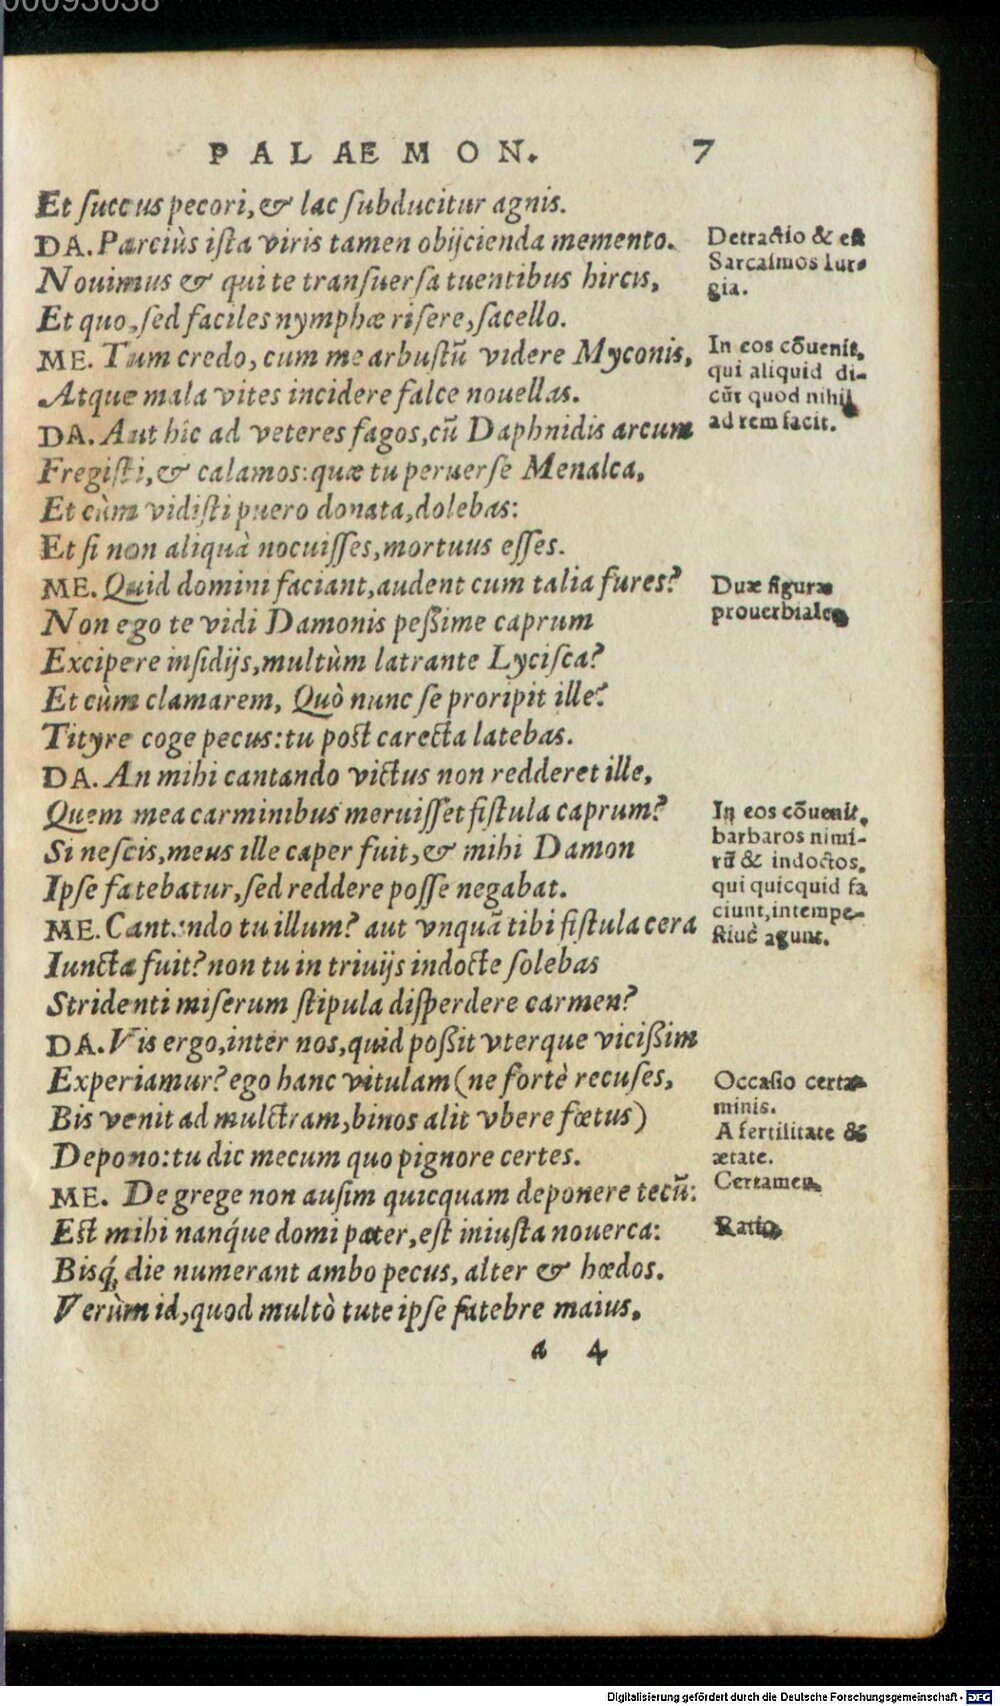 00093038
PALAEMON. 7
Et ſuccus pecori, & lac ſubducitur agnis.
DA. Parciùs iſta viris tamen obijcienda memento.
Nouimus & qui te tranſuerſa tuentibus hircis,
Et quo, ſed faciles nymphæ riſere, ſacello.
ME. Tum credo, cum me arbuſtũ videre Myconis,
Atque mala vites incidere falce nouellas.
DA. Aut hîc ad veteres fagos, cũ Daphnidis arcum
Fregiſti, & calamos: quæ tu peruerſe Menalca,
Et cùm vidiſti puero donata, dolebas:
Et ſi non aliquà nocuiſſes, mortuus eſſes.
ME. Quid domini faciant, audent cum talia fures?
Non ego te vidi Damonis peßime caprum
Excipere inſidijs, multùm latrante Lyciſca?
Et cùm clamarem, Quò nunc ſe proripit ille?
Tityre coge pecus: tu poſt carecta latebas.
DA. An mihi cantando victus non redderet ille,
Quem mea carminibus meruiſſet fiſtula caprum?
Si neſcis, meus ille caper fuit, & mihi Damon
Ipſe fatebatur, ſed reddere poſſe negabat.
ME. Cantando tu illum? aut vnquã tibi fiſtula cera
Iuncta fuit? non tu in triuijs indocte ſolebas
Stridenti miſerum ſtipula diſperdere carmen?
DA. Vis ergo, inter nos, quid poßit vterque vicißim
Experiamur? ego hanc vitulam (ne fortè recuſes,
Bis venit ad mulctram, binos alit vbere fœtus)
Depono: tu dic mecum quo pignore certes.
ME. De grege non auſim quicquam deponere tecũ:
Eſt mihi nanq́ue domi pater, eſt iniuſta nouerca:
Bisq́; die numerant ambo pecus, alter & hœdos.
Verùm id, quod multò tute ipſe fatebre maius,
a 4
Detractio & eſt
Sarcaſmos Iur-
gia.
In eos cõuenit,
qui aliquid di-
cũt quod nihil
ad rem facit.
Duæ figuræ
prouerbiales
In eos cõuenit,
barbaros nimi-
rũ & indoctos,
qui quicquid fa
ciunt, intempe-
ſtiuè agunt.
Occaſio certa-
minis.
A fertilitate &
ætate.
Certamen.
Ratio.
Digitalisierung gefördert durch die Deutsche Forschungsgemeinschaft - DFG